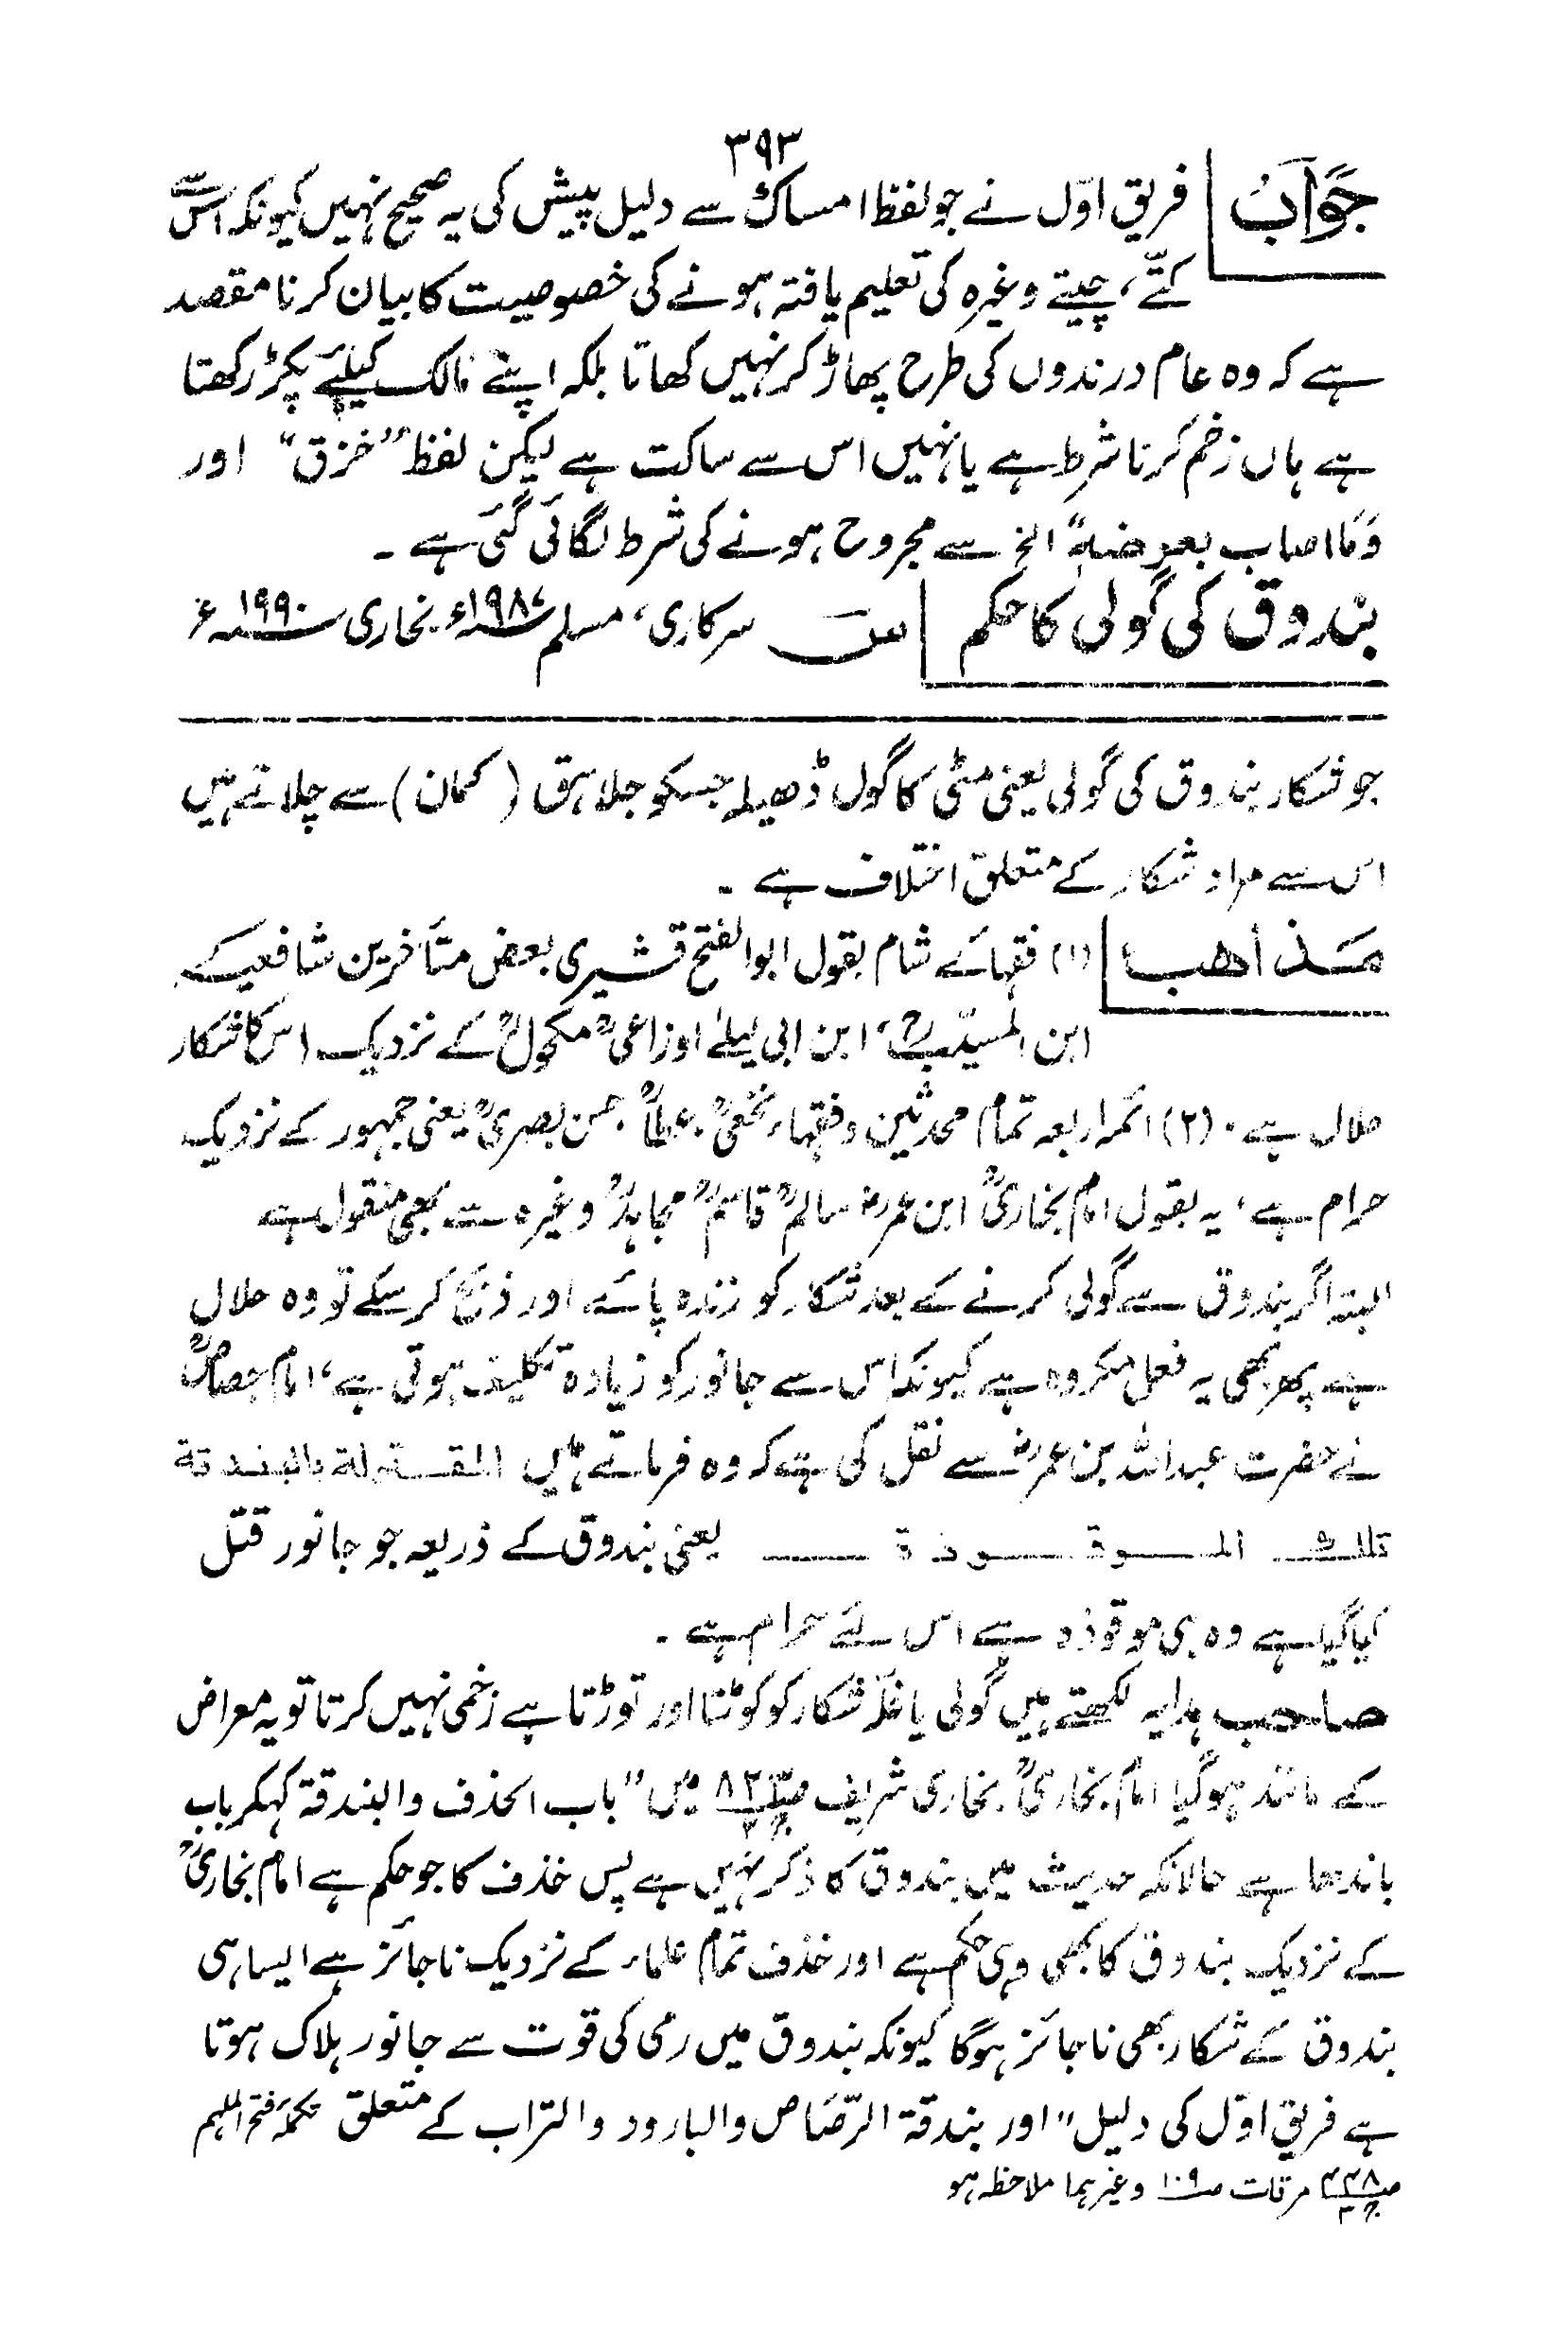 ۳۹۳
جَوَابُ فریق اوّل نے جو لفظ امساک سے دلیل پیش کی یہ صحیح نہیں کیونکہ اس سے
کتّے، چیتے وغیرہ کی تعلیم یافتہ ہونے کی خصوصیت کا بیان کرنا مقصد
ہے کہ وہ عام درندوں کی طرح پھاڑ کر نہیں کھاتا بلکہ اپنے مالک کیلئے پکڑ رکھتا
ہے ہاں زخم کرنا شرط ہے یا نہیں اس سے ساکت ہے لیکن لفظ ”خزق“ اور
وَمَا اصاب بعرضہٖ الخ سے مجروح ہونے کی شرط لگائی گئی ہے ۔
بندوق کی گولی کا حکم س سرکاری، مسلم ۱۹۸۷ء بخاری ۱۹۹۰ء
جو شکار بندوق کی گولی یعنی مٹی کا گول ڈھیلہ جسکو جلاہق (کمان) سے چلاتے ہیں
اس سے مراد شکار کے متعلق اختلاف ہے ۔
مَذاهب (۱) فقہائے شام بقول ابوالفتح قشیری بعض متأخرین شافعیہ کے
ابن المسیّبؒ، ابن ابی لیلےٰ اوزاعیؒ مکحولؒ کے نزدیک اس کا شکار
حلال ہے ۔ (۲) ائمہ اربعہ تمام محدثین وفقہاء نخعیؒ، عطاؒ، حسن بصریؒ یعنی جمہور کے نزدیک
حرام ہے، یہ بقول امام بخاریؒ ابن عمرؓ سالمؒ قاسمؒ مجاہدؒ وغیرہ سے بھی منقول ہے
البتہ اگر بندوق سے گولی کرنے کے بعد شکار کو زندہ پائے اور ذبح کر سکے تو وہ حلال
ہے پھر بھی یہ فعل مکروہ ہے کیونکہ اس سے جانور کو زیادہ تکلیف ہوتی ہے، امام جصاصؒ
نے حضرت عبداللہ بن عمرؓ سے نقل کی ہے کہ وہ فرماتے ہیں المقتولة بالبندقة
تلك الموقوذة یعنی بندوق کے ذریعہ جو جانور قتل
کیا گیا ہے وہ ہی موقوذہ ہے اس لئے حرام ہے ۔
صاحب ہدایہ لکھتے ہیں گولی یا غلّہ شکار کو کوٹتا اور توڑتا ہے زخمی نہیں کرتا تو یہ معراض
کے مانند ہوگیا امام بخاریؒ بخاری شریف میں ”باب الخذف والبندقة کہکر باب
باندھا ہے حالانکہ حدیث میں بندوق کا ذکر نہیں ہے پس خذف کا جو حکم ہے امام بخاریؒ
کے نزدیک بندوق کا بھی وہی حکم ہے اور خذف تمام علماء کے نزدیک ناجائز ہے ایسا ہی
بندوق کے شکار بھی ناجائز ہوگا کیونکہ بندوق میں رمی کی قوت سے جانور ہلاک ہوتا
ہے فریق اوّل کی دلیل" اور بندقة الرّصَاص والبارود والتراب کے متعلق تکملہ فتح الملہم
مرقات صـ۱۰۹ وغیرہما ملاحظہ ہو